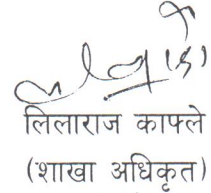 लिलाराज काफ्ले
(शाखा अधिकृत)